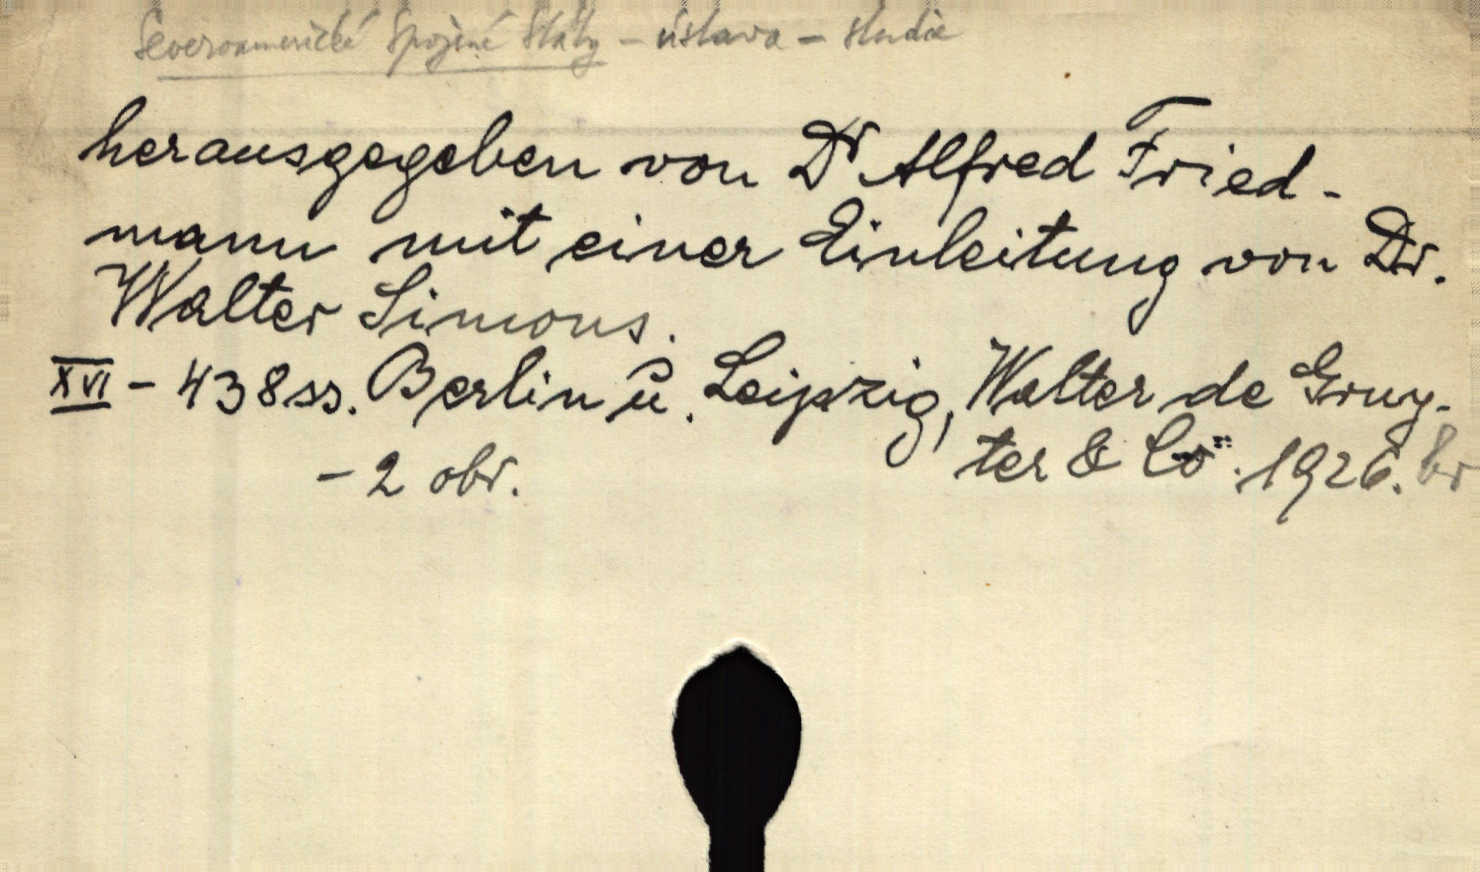 Severoamerické Spojené Státy – ústava – studie
herausgegeben von Dr Alfred Fried-
mann mit einer Einleitung von Dr.
Walter Simons.
XVI – 438 ss. Berlin u. Leipzig, Walter de Gruy-
ter & Co. 1926. br
– 2 obr.